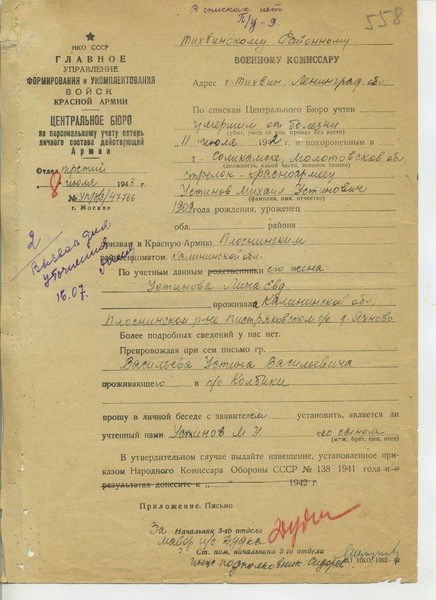 В списках нет
П/у-9.
558
НКО СССР
ГЛАВНОЕ
УПРАВЛЕНИЕ
ФОРМИРОВАНИЯ и УКОМПЛЕКТОВАНИЯ
ВОЙСК
КРАСНОЙ АРМИИ
ЦЕНТРАЛЬНОЕ БЮРО
по персональному учету потерь
личного состава действующей
Армии
Отдел третий
8 июля 1943 г.
№
г. Москва
2
Вызвал для
уточнения
16.07.
Тихвинскому Районному
ВОЕННОМУ КОМИССАРУ
Адрес г. Тихвин Ленинград. обл.
По спискам Центрального Бюро учтен
умершим от болезни
(убит, умер от ран, пропал без вести)
"11" июля 1942 г. и похороненным в
г. Соликамске, Молотовской обл
(должность, какой части, военное звание)
стрелок - красноармеец
Устинов Михаил Устинович
(фамилия, имя, отчество)
1909 года рождения, уроженец
обл. района
призван в Красную Армию Плоскинским
райвоенкоматом. Калининской обл.
По учетным данным родственники его жена
Устинова
проживала Калининской обл.
Плоскинском р-не Пистряковском с/с д.
Более подробных сведений у нас нет.
Препровождая при сем письмо гр.
Васильева Устина Васильевича
проживающего в п/о Колбики
прошу в личной беседе с заявителем установить, является ли
учтенный нами Устинов М. У. его сыном
(муж, брат, сын, отец)
В утвердительном случае выдайте извещение, установленное при-
казом Народного Комиссара Обороны СССР № 138 1941 года и о
результатах донесите к „ “ 1942 г.
Приложение. Письмо
За Начальник 3-го отдела
майор и/с Дудка
Ст. пом. начальника 3-го отдела
подполковник Сидоров